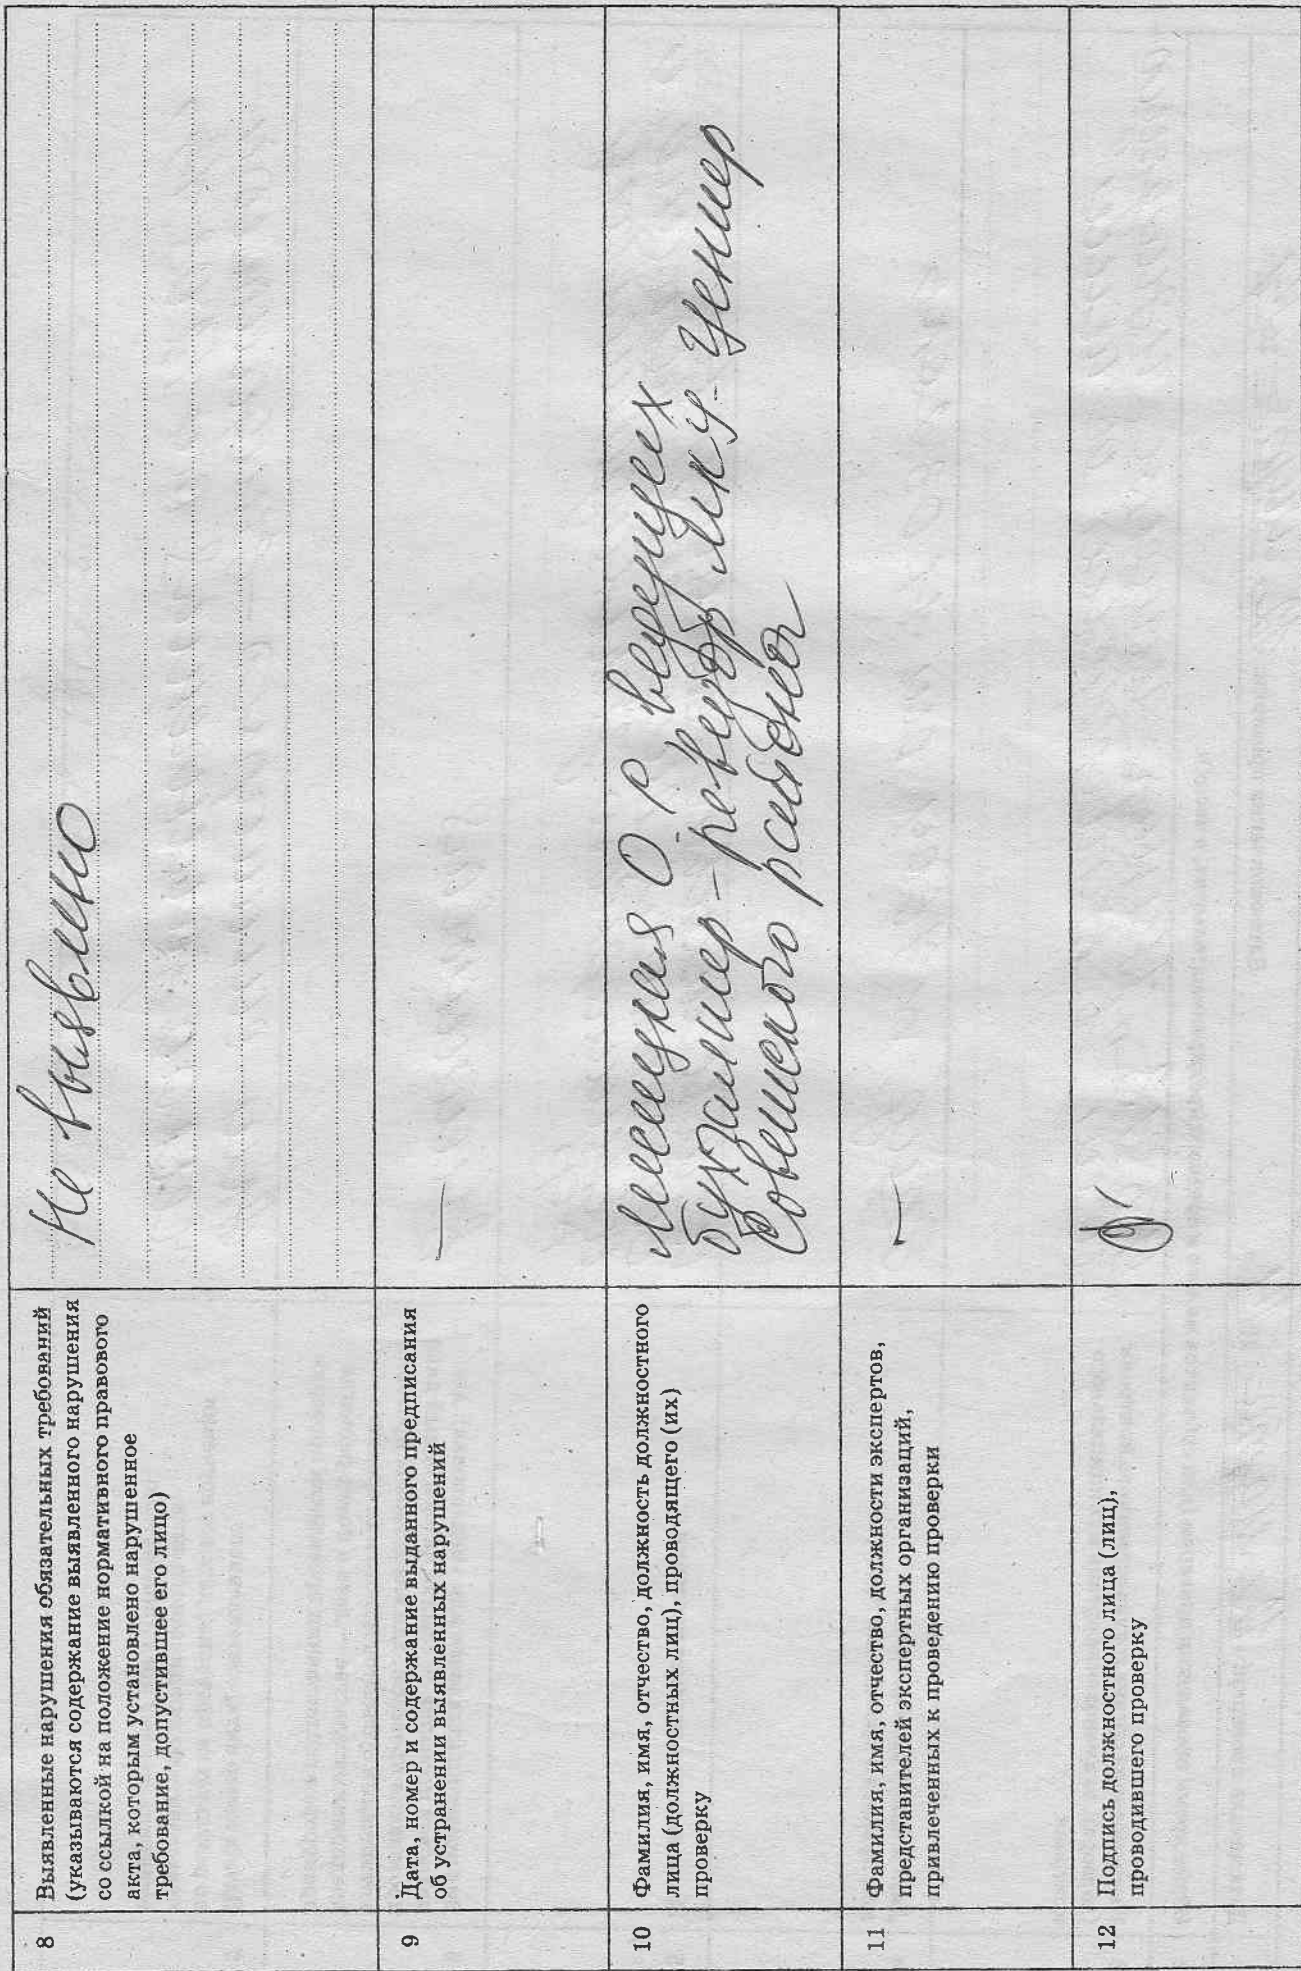 8
Выявленные нарушения обязательных требований
(указываются содержание выявленного нарушения
со ссылкой на положение нормативного правового
акта, которым установлено нарушенное
требование, допустившее его лицо)
Не выявлено
9
Дата, номер и содержание выданного предписания
об устранении выявленных нарушений
—
10
Фамилия, имя, отчество, должность должностного
лица (должностных лиц), проводящего (их)
проверку
О.Р. ведущий
бухгалтер-ревизор МКУ Центр
Советского района
11
Фамилия, имя, отчество, должности экспертов,
представителей экспертных организаций,
привлеченных к проведению проверки
—
12
Подпись должностного лица (лиц),
проводившего проверку